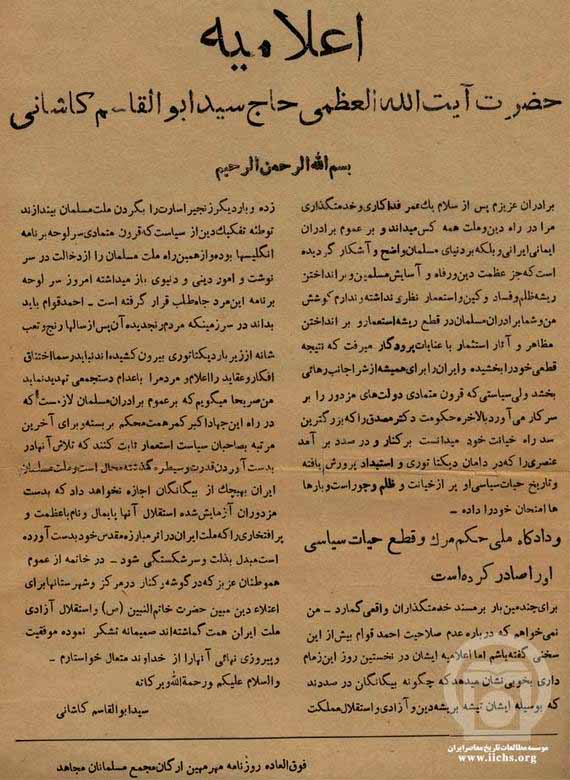 اعلامیه
حضرت آیت الله العظمی حاج سید ابوالقاسم کاشانی
بسم الله الرحمن الرحیم
برادران عزیزم پس از سلام یک عمر فداکاری و خدمتگذاری
مرا در راه دین و ملت همه کس میداند و بر عموم برادران
ایمانی ایرانی و بلکه بر دنیای مسلمان واضح و آشکار گردیده
است که جز عظمت دین و رفاه و آسایش مسلمین و بر انداختن
ریشه ظلم و فساد و کین و استعمار نظری نداشته و ندارم کوشش
من و شما برادران مسلمان در قطع ریشه استعمار و بر انداختن
مظاهر و آثار استثمار با عنایات پرودگار میرفت که نتیجه
قطعی خود را بخشیده و ایران را برای همیشه از شر اجانب رهائی
بخشد ولی سیاستی که قرون متمادی دولت های مزدور را بر
سر کار می آورد بالاخره حکومت دکتر مصدق را که بزرگترین
سد راه خیانت خود میدانست بر کنار و در صدد بر آمد
عنصری را که در دامان دیکتا توری و استبداد پرورش یافته
و تاریخ حیات سیاسی او پر از خیانت و ظلم و جور است و بارها
ها امتحان خود را داده ـ
و دادگاه ملی حکم مرک و قطع حیات سیاسی
او را صادر کرده است
برای چندمین بار بر مسند خدمتگذاران واقعی گمارد ـ من
نمی خواهم که درباره عدم صلاحیت احمد قوام بیش از این
سخنی گفته باشم اما اعلامیه ایشان در نخستین روز این زمام
داری بخوبی نشان میدهد که چگونه بیگانگان در صددند
که بوسیله ایشان تیشه بریشه دین و آزادی و استقلال مملکت
زده و بار دیگر زنجیر اسارت را بگردن ملت مسلمان بیندازند
توطئه تفکیک دین از سیاست که قرون متمادی سر لوحه برنامه
انگلیسها بوده و از همین راه ملت مسلمان را از دخالت در سر
نوشت و امور دینی و دنیوی باز میداشته امروز سر لوحه
برنامه این مرد جاه طلب قرار گرفته است ـ احمد قوام باید
بداند در سر زمینکه مردم رنجدیده آن پس از سالها رنج و تعب
شانه از زیر بار دیکتاتوری بیرون کشیده اند نباید رسما اختناق
افکار و عقاید را اعلام و مردم را باعدام دستجمعی تهدید نماید
من صریحا میگویم که بر عموم برادران مسلمان لازمست که
در راه این جهاد اکبر کمر همت محکم بر بسته و برای آخرین
مرتبه بصاحبان سیاست استعمار ثابت کنند که تلاش آنها در
بدست آوردن قدرت و سیطره گذشته محال است و ملت مسلمان
ایران بهیچک از بیگانگان اجازه نخواهد داد که بدست
مزدوران آزمایش شده استقلال آنها پایمال و نام باعظمت و
پر افتخاری را که ملت ایران در اثر مبارزه مقدس خود بدست آورده
است مبدل بذلت و سر شکستگی شود ـ در خاتمه از عموم
هموطنان عزیز که در گوشه و کنار در مرکز و شهرستانها برای
اعتلاء دین مبین حضرت خاتم النبین (س) و استقلال آزادی
ملت ایران همت گماشته اند صمیمانه تشکر نموده موفقیت
و پیروزی نهائی آنها را از خداوند متعال خواستارم ـ
والسلام علیکم و رحمة الله و برکاته
سید ابوالقاسم کاشانی
فوق العاده روزنامه مهر میهن ارگان مجمع مسلمانان مجاهد
موسسه مطالعات تاریخ معاصر ایران
www.iichs.org